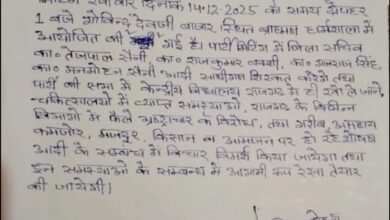 रविवार दिनांक 14-12-2025 को समय दोपहर
1 बजे गोविन्द देवजी बाजार स्थित ब्राह्मण धर्मशाला में
आयोजित की गई है। पार्टी मिटिंग में जिला सचिव
का० तेजपाल सैनी, का० राजकुमार
का० मनमोहन सैनी आदी साथीगण शिरकत करेंगे तथा
पार्टी की सभा में केन्द्रीय विद्यालय राजगढ में ही खोले जाने,
चिकित्सालयों में व्याप्त समस्याओं, राजगढ के विभिन्न
विभागों में फैले भ्रष्टाचार के विरोध, तथा गरीब, असहाय
कमजोर, मजदूर, किसान व आमजन पर हो रहे शोषण
आदी के सम्बन्ध में विचार विमर्श किया जायेगा तथा
इन समस्याओं के सम्बन्ध में आगामी रूप रेखा तैयार
की जायेगी।